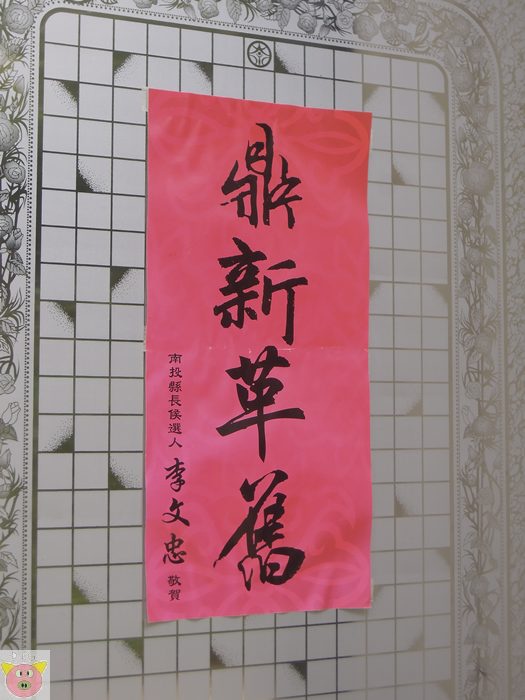 鼎新革舊
南投縣長候選人 李文忠 敬賀